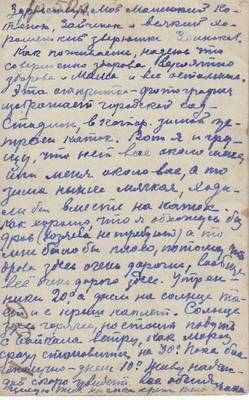 Здравствуй Моя Маленькая Ко
тенок, Зайчик и всякий хо
рошенький зверюшка
Как поживаете, надеюсь что
совершенно здорова
здорова и Мама и все остальные.
Эта открытка-фотография
изображает городской сад-
стадион, в котор. зимой уст
роен каток. Вот я и гру
щу, что нет вас около меня,
или меня около вас, а то
зима нынче мягкая, ходи
ли бы вместе на каток.
Как хорошо, что я обхожусь без
дров (хозяева не требуют) а то
мне было бы плохо, потому что
дрова здесь очень дороги, вообще
всё очень дорого здесь. Утрен
ники 20° а днем на солнце та
ет и с крыш каплет. Солнце
горячее, но стоит подуть
с Байкала ветру, как мороз
сразу становится на 30°. Пока
днем 10°. Живу надеж
дой скоро увидеть вас